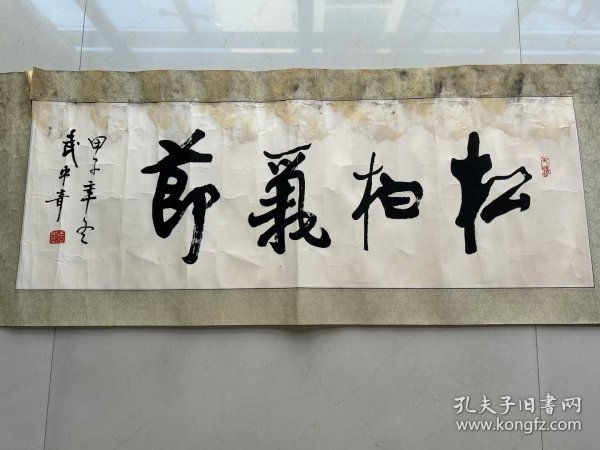 松柏義節
甲子年冬
武中奇
孔夫子旧书网
www.kongfz.com